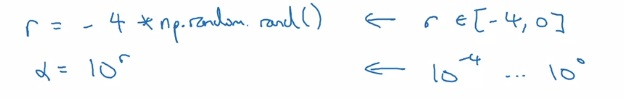 r = -4 * np.random.rand() ← r ∈ [-4, 0]
α = 10^r ← 10^-4 ... 10^0